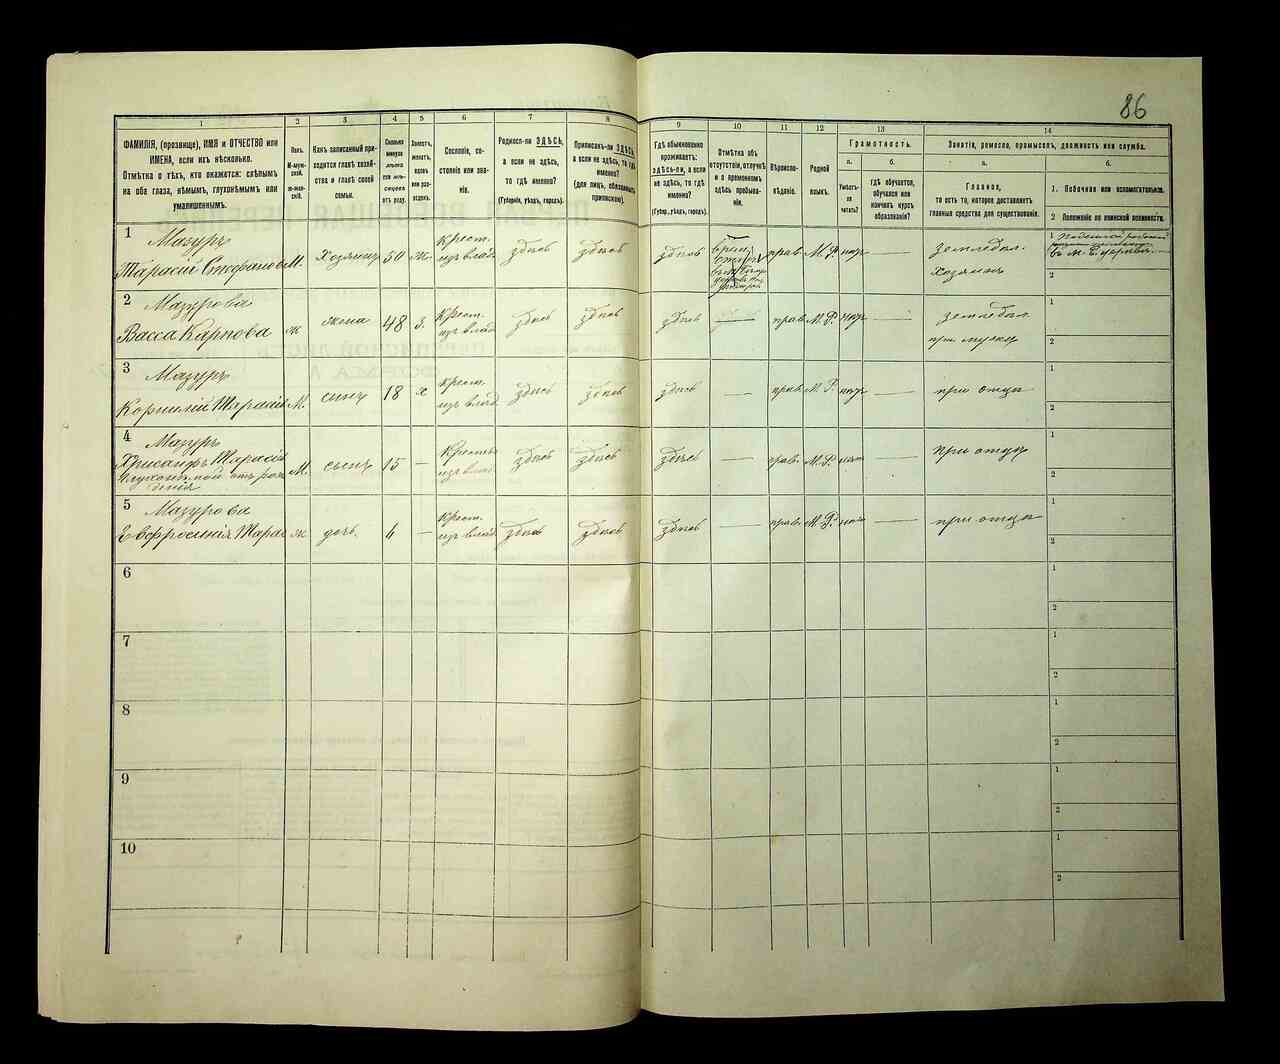 86
1
2
3
4
5
6
7
8
9
10
11
12
13
14
ФАМИЛІЯ, (прозвище), ИМЯ и ОТЧЕСТВО или
ИМЕНА, если ихъ нѣсколько.
Отмѣтка о тѣхъ, кто окажется: слѣпымъ
на оба глаза, нѣмымъ, глухонѣмымъ или
умалишеннымъ.
Полъ.
М-муж-
ской.
Ж-жен-
скій.
Какъ записанный при-
ходится главѣ хозяй-
ства и главѣ своей
семьи.
Сколько
минуло
лѣтъ
или мѣ-
сяцевъ
отъ роду.
Холостъ,
женатъ,
вдовъ
или раз-
веденъ.
Сословіе, со-
стояніе или зва-
ніе.
Родился-ли ЗДѢСЬ,
а если не здѣсь,
то гдѣ именно?
(Губернія, уѣздъ, городъ).
Приписанъ-ли ЗДѢСЬ,
а если не здѣсь, то гдѣ
именно?
(для лицъ, обязанныхъ
припискою).
Гдѣ обыкновенно
проживаетъ:
ЗДѢСЬ-ли, а если
не здѣсь, то гдѣ
именно?
(Губер., уѣздъ, городъ).
Отмѣтка объ
отсутствіи, отлучкѣ
и о временномъ
здѣсь пребыва-
ніи.
Вѣроиспо-
вѣданіе.
Родной
языкъ.
Грамотность.
а.
б.
Умѣетъ-
ли
читать?
гдѣ обучается,
обучался или
кончилъ курсъ
образованія?
Занятія, ремесло, промыселъ, должность или служба.
а.
б.
Главное,
то есть то, которое доставляетъ
главныя средства для существованія.
1. Побочное или вспомогательное.
2 Положеніе по воинской повинности.
1
Мазуръ
Тарасій Стефановъ
М.
хозяинъ
50
ж.
Крест.
изъ влад.
здѣсь
здѣсь
здѣсь
прав.
М. Р.
нѣтъ
земледѣл.
хозяинъ
1
2
2
Мазурова
Васса Карпова
ж
жена
48
з.
Крест.
изъ влад.
здѣсь
здѣсь
здѣсь
—
прав.
М. Р.
нѣтъ
—
земледѣл.
при мужѣ
1
2
3
Мазуръ
Корнилій Тарасіевъ
М.
сынъ
18
х
Крест.
изъ влад.
здѣсь
здѣсь
здѣсь
—
прав.
М. Р.
нѣтъ
—
при отцѣ
1
2
4
Мазуръ
Хрисанфъ Тарасіев
Глухонѣмой отъ рож
денія
М.
сынъ
15
—
Крестъ
изъ влад.
здѣсь
здѣсь
здѣсь
—
прав.
М. Р.
нѣтъ
при отцѣ
1
2
5
Мазурова
Евфросинія Тарас
ж
дочь
4
—
Крест.
изъ влад.
здѣсь
здѣсь
здѣсь
—
прав.
М. Р.
нѣтъ
—
при отцѣ
1
2
6
1
2
7
1
2
8
1
2
9
1
2
10
1
2